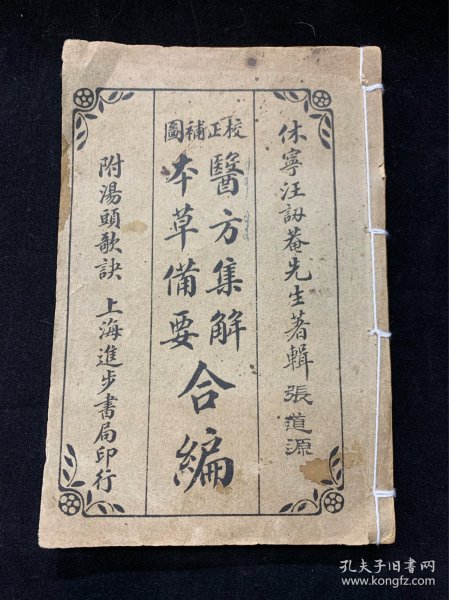 休寧汪訒菴先生著輯 張道源
校正補圖
醫方集解
本草備要
合編
附湯頭歌訣 上海進步書局印行
孔夫子旧书网
www.kongfz.com